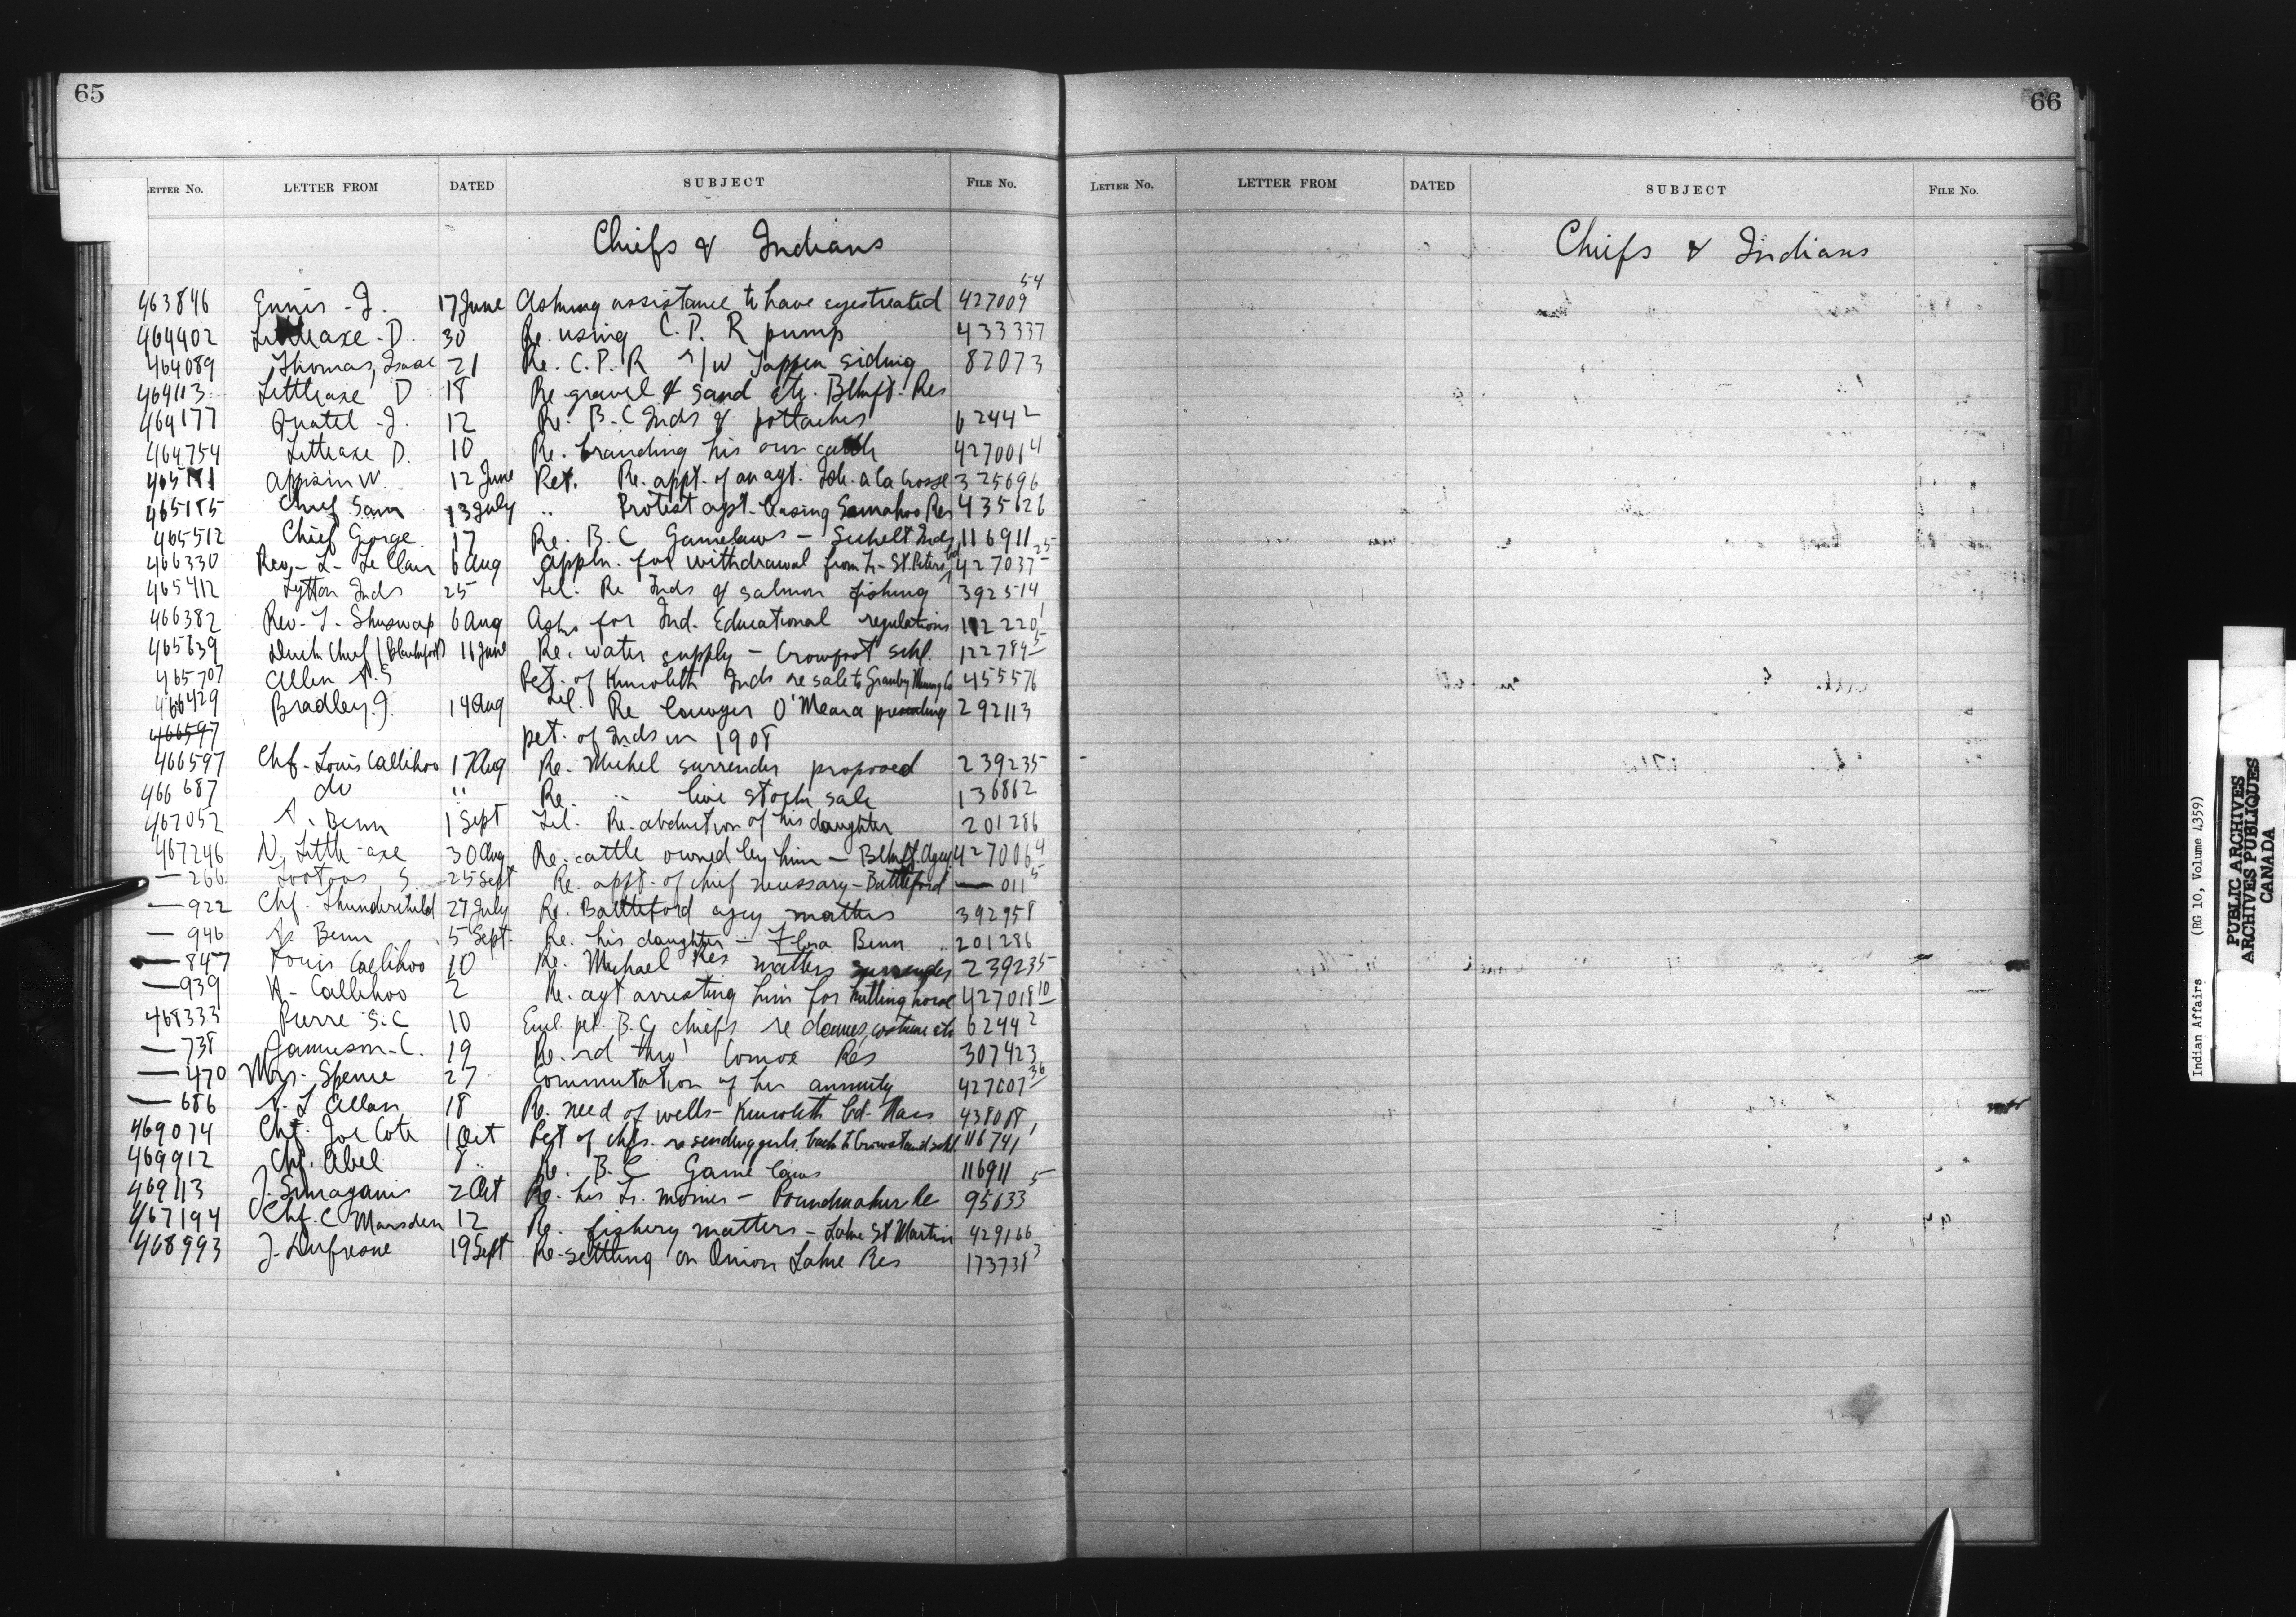 65
LETTER No. LETTER FROM DATED SUBJECT FILE No.
Chiefs & Indians
463846 Ennis - J. 17 June Asking assistance to have eyes treated 427009 54
464402 Littleaxe - D. 30 Re. using C.P.R pump 433337
464089 Thomas, Isaac 21 Re. C.P.R r/w Tappen siding 82073
469113 Littleaxe D 18 Re gravel & sand etc. Blkft. Res
464177 Quatel - J. 12 Re. B.C Inds & pottaches 62444 2
464754 Littleaxe D. 10 Re. branding his own cattle 427001 4
Appsin W. 12 June Pet. Re. appt. of an agt. Isle. a la Crosse 325696
465185 Chief Sam 13 July " Protest agst. leasing Semahoo Res 435626
465512 Chief Gorge 17 Re. B.C Gamelaws - Sechelt Inds 116911
466330 Rev. - L - Le Clair 6 Aug Appln. for withdrawal from Tr - St. Peters bd 427037 25
465412 Lytton Inds 25 Tel. Re Inds & salmon fishing 392514
466382 Rev - L - Shuswap 6 Aug Asks for Ind. Educational regulations 112220 1
465639 Duck Chief (Blackfoot) 11 June Re. water supply - Crowfoot schl. 122784 5
465707 Allen A.S Pet. of Kincolith Inds re sale to Granby Mining Co 455576
466429 Bradley. J. 14 Aug Tel. Re lawyer O'Meara presenting 292113
466597 pet. of Inds in 1908
466597 Chf - Louis Callihoo 17 Aug Re. Michel surrender proposed 239235
466687 do " Re. " live stock sale 136862
467052 A. Benn 1 Sept Tel. Re. abduction of his daughter 201286
467246 D. Little-axe 30 Aug Re. cattle owned by him - Blkft. Agcy. 427006 4
— 266 Tootoos, S 25 Sept Re. appt. of chief necessary - Battleford — 011 5
— 922 Chf. Thunderchild 27 July Re. Battleford agcy matters 392958
— 946 A. Benn 5 Sept. Re. his daughter - Flora Benn 201286
— 847 Louis Callihoo 10 Re. Michael Res matters surrender 239235
— 939 H - Callihoo 2 Re. agt arresting him for killing horse 427018 10
468333 Pierre S.C 10 Encl. pet. B.C. chiefs re dances, costume etc 62444 2
— 738 Jamieson - C. 19 Re. rd thro' Comox Res 307423
— 470 Mrs. Spence 27 Commutation of her annuity 427007 36
— 686 A. L Allan 18 Re. need of wells - Kincolith bd - Nass 438088
469074 Chf. Joe Cote 1 Oct Pet of chfs. re sending girls back to Crowstand schl. 116741 1
469912 Chf. Abel 8 " Re. B.C Game laws 116911
469113 J. 2 Oct Re. his Tr. monies - Poundmaker Re 95633 5
467194 Chf. C Marsden 12 Re. fishery matters - Lake St Martin 429166
468993 J. Dufresne 19 Sept Re - settling on Onion Lake Res 173738 3
66
LETTER No. LETTER FROM DATED SUBJECT FILE No.
Chiefs & Indians
Indian Affairs (RG 10, Volume 4359)
PUBLIC ARCHIVES
ARCHIVES PUBLIQUES
CANADA